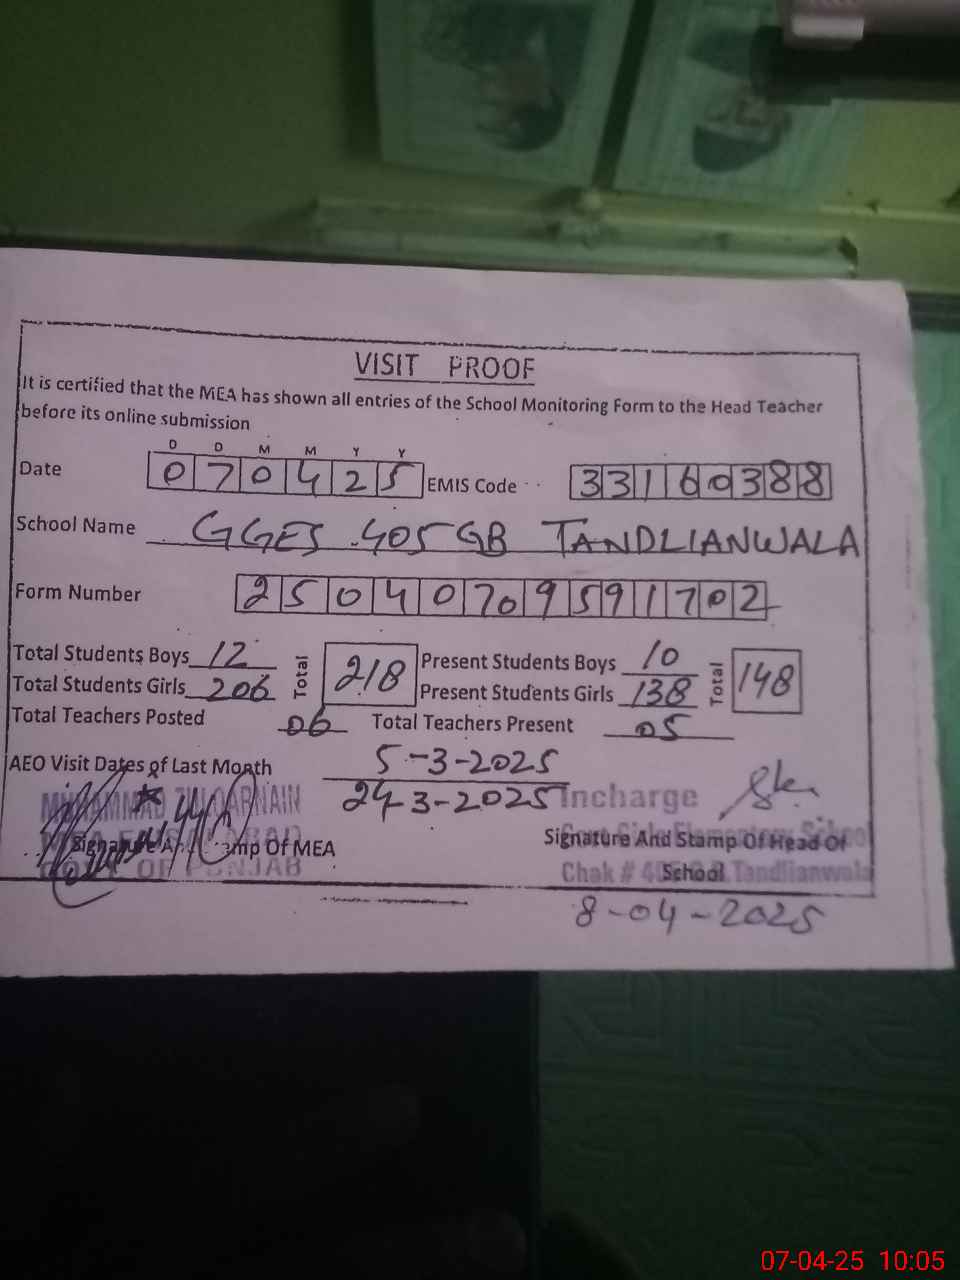 VISIT PROOF
It is certified that the MEA has shown all entries of the School Monitoring Form to the Head Teacher
before its online submission
D D M M Y Y
Date 070425 EMIS Code 33160388
School Name GGES 405 GB TANDLIANWALA
Form Number 25040709591702
Total Students Boys 12 Total 218 Present Students Boys 10 Total 148
Total Students Girls 206 Present Students Girls 138
Total Teachers Posted 06 Total Teachers Present 05
AEO Visit Dates of Last Month 5-3-2025
24-3-2025
MUHAMMAD ZULQARNAIN
MEA FAISALABAD
GOVT OF PUNJAB
Signature And Stamp Of MEA
Incharge
Govt Girls Elementary School
Chak # 405 G.B. Tandlianwala
Signature And Stamp Of Head Of
School
8-04-2025
07-04-25 10:05